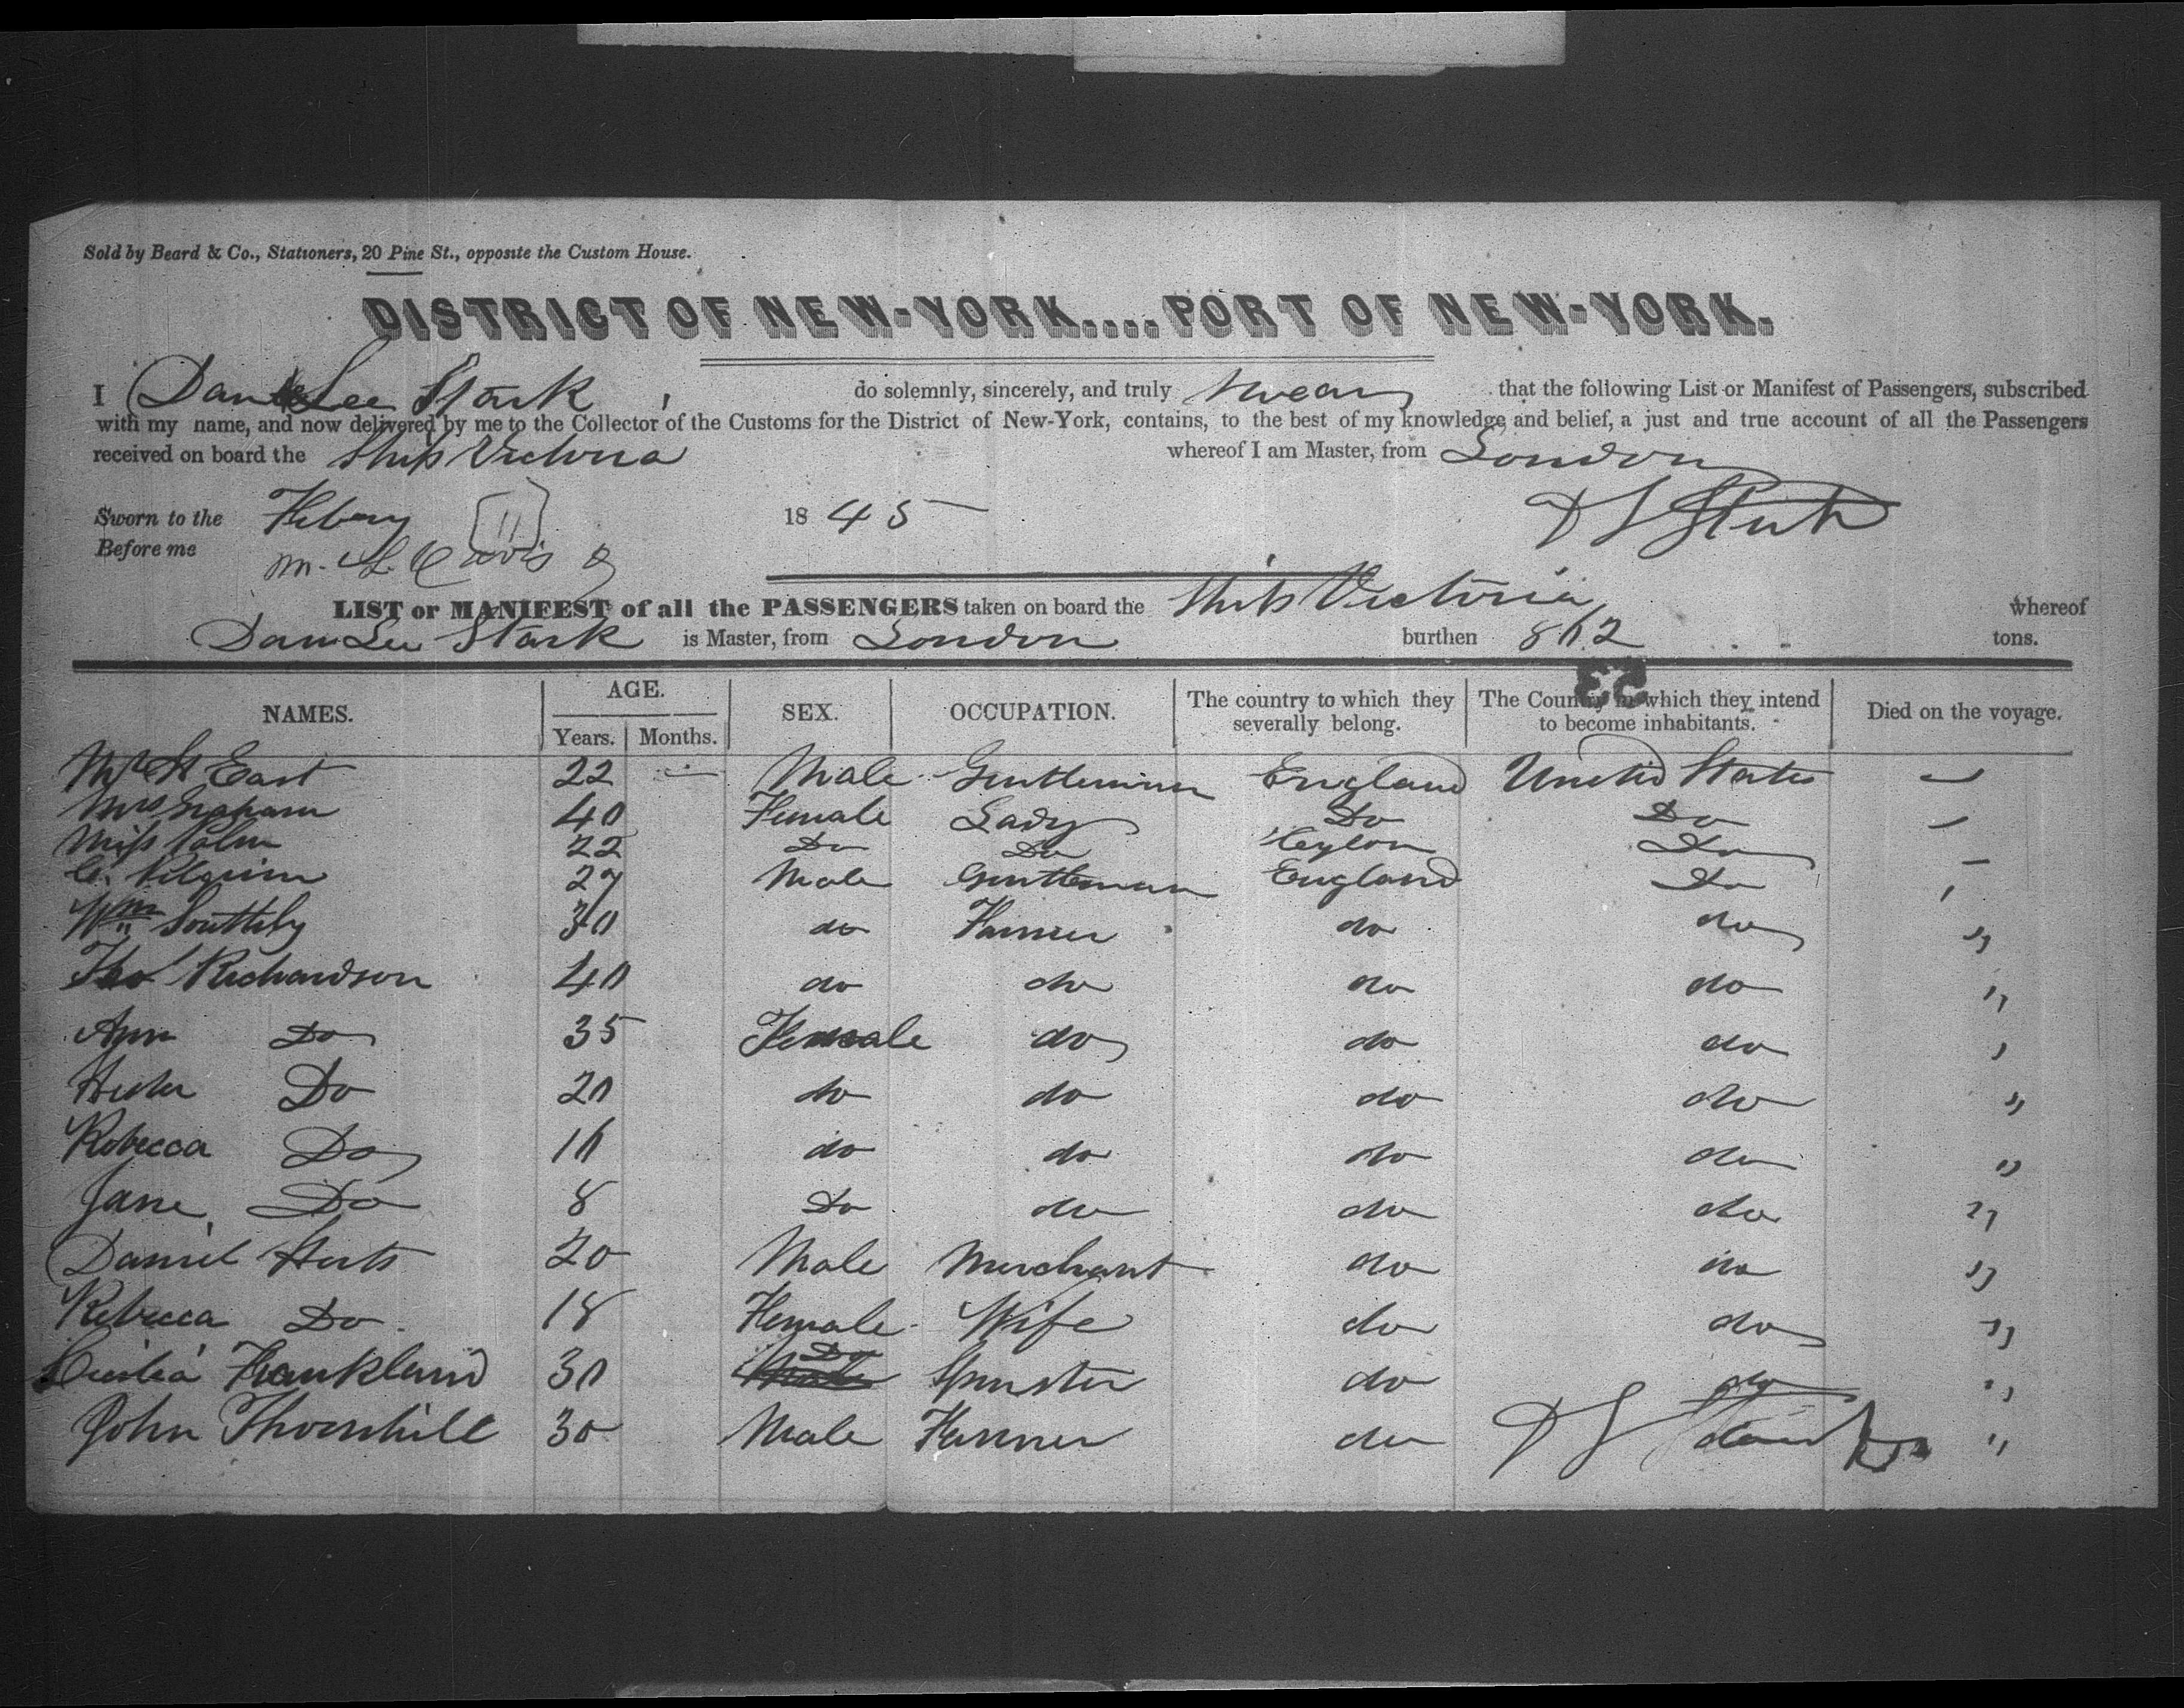 Sold by Beard & Co., Stationers, 20 Pine St., opposite the Custom House.
DISTRICT OF NEW-YORK....PORT OF NEW-YORK.
I Danl Lee Stark do solemnly, sincerely, and truly swear that the following List or Manifest of Passengers, subscribed
with my name, and now delivered by me to the Collector of the Customs for the District of New-York, contains, to the best of my knowledge and belief, a just and true account of all the Passengers
received on board the Ship Victoria whereof I am Master, from London
Sworn to the Febary 11 1845 D L Stark
Before me M. L. Davis
LIST or MANIFEST of all the PASSENGERS taken on board the Ship Victoria whereof
Danl Lee Stark is Master, from London burthen 862 tons.
53
NAMES. AGE. Years. Months. SEX. OCCUPATION. The country to which they severally belong. The Country in which they intend to become inhabitants. Died on the voyage.
East 22 Male Gentleman England United States —
Mrs Graham 40 Female Lady Do Do —
Miss Palm 22 Do Do Ceylon Do —
C. Pilgrim 27 Male Gentleman England Do
Wm Southby 30 do Farmer do do "
Thos Richardson 40 do do do do "
Ann Do 35 Female do do do "
Hester Do 20 do do do do "
Rebecca Do 16 do do do do "
Jane Do 8 Do do do do "
Daniel 20 Male Merchant do do "
Rebecca Do 18 Female Wife do do "
Frankland 30 Do Spinster do do "
John Thornhill 30 Male Farmer do "
D L Stark